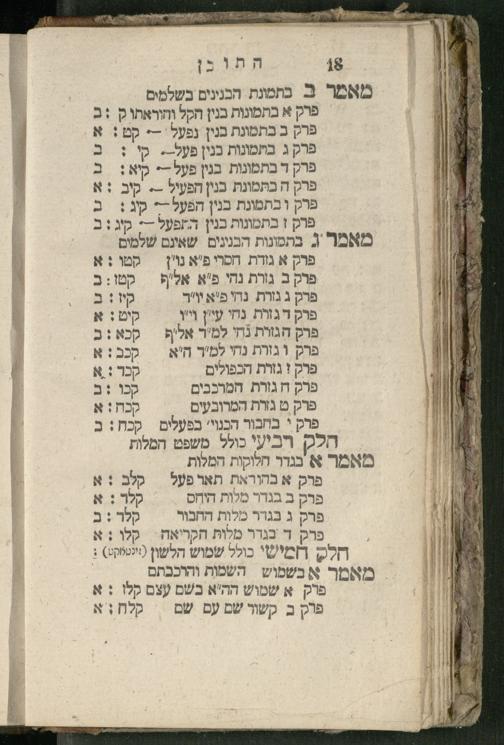 18 התוכן
מאמר ב בתמונת הבנינים בשלמים
פרק א בתמונות בנין הקל והוראתו ק : ב
פרק ב בתמונות בנין נפעל — קט : א
פרק ג בתמונות בנין פעל — קי : ב
פרק ד בתמונות בנין פעל — קיא : ב
פרק ה בתמונות בנין הפעיל — קיב : א
פרק ו בתמונות בנין הפעל — קיג : ב
פרק ז בתמונות בנין התפעל — קיג : ב
מאמר ג בתמונות הבנינים שאינם שלמים
פרק א גזרת חסרי פ״א נו״ן קטו : א
פרק ב גזרת נהי פ״א אל״ף קטז : ב
פרק ג גזרת נהי פ״א יו״ד קיז : ב
פרק ד גזרת נהי עי״ן וי״ו קיט : א
פרק ה גזרת נחי למ״ד אל״ף קכא : ב
פרק ו גזרת נחי למ״ד ה״א קכב : א
פרק ז גזרת הכפולים קכד : א
פרק ח גזרת המרכבים קכו : ב
פרק ט גזרת המרובעים קכח : א
פרק י בחבור הכנוי׳ בפעלים קכח : ב
חלק רביעי כולל משפט המלות
מאמר א בגדר חלוקות המלות
פרק א בהוראת תאר פעל קלב : א
פרק ב בגדר מלות היחס קלד : א
פרק ג בגדר מלות החבור קלד : ב
פרק ד בגדר מלות הקריאה קלו : א
חלק חמישי כולל שמוש הלשון (זינטאקס) :
מאמר א בשמוש השמות והרכבתם
פרק א שמוש הה״א בשם עצם קלז : א
פרק ב קשור שם עם שם קלח : א